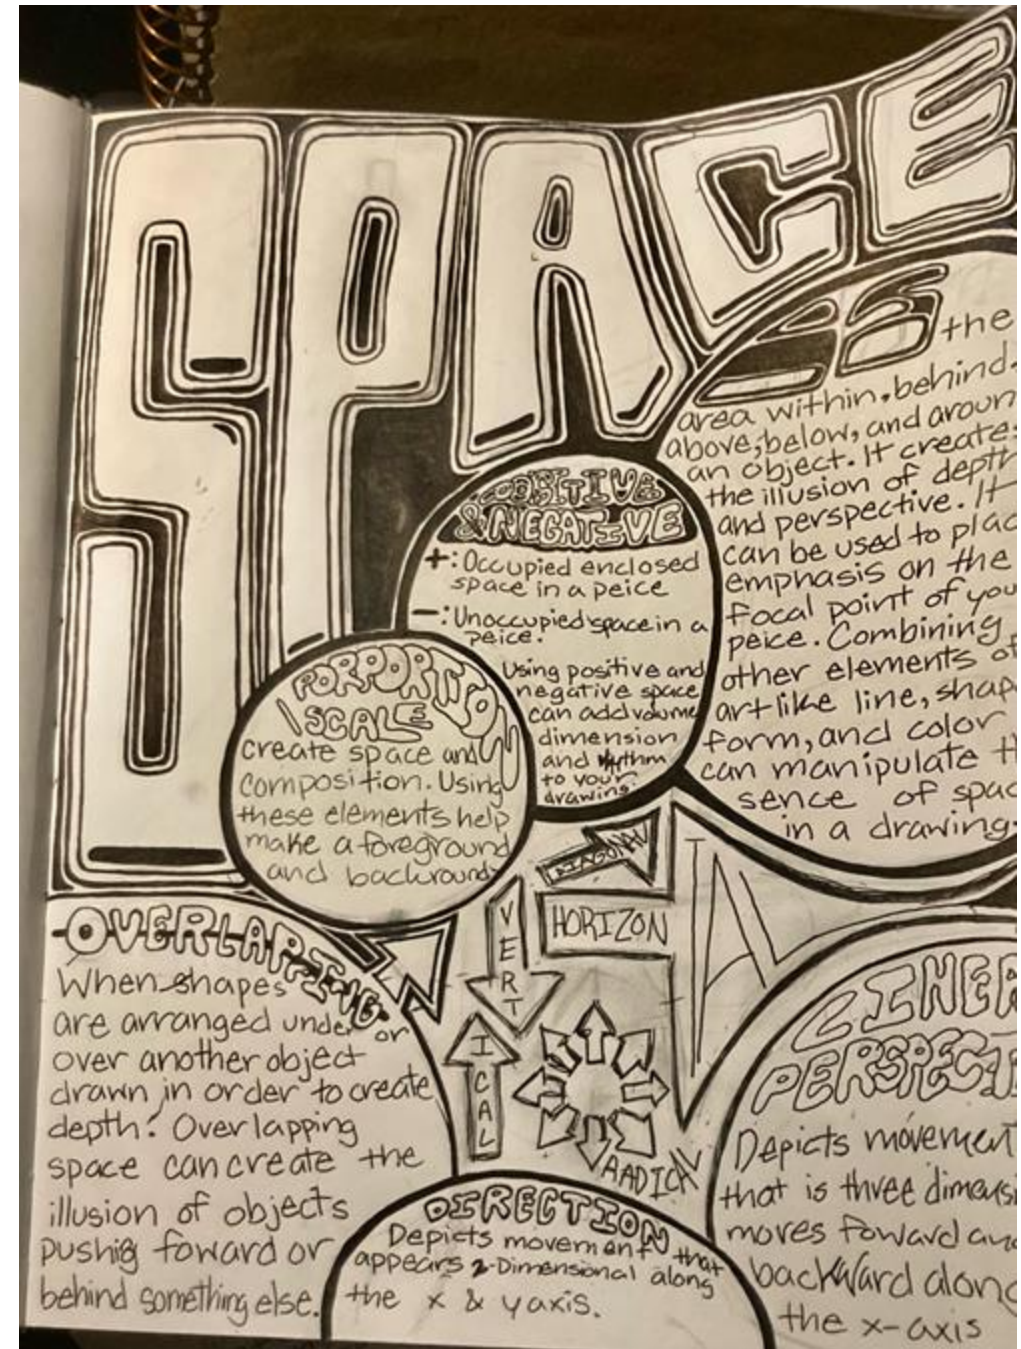 SPACE
IS the
area within, behind,
above, below, and aroun
an object. It creates
the illusion of depth
and perspective. It
can be used to plac
emphasis on the
focal point of you
peice. Combining
other elements of
art like line, shap
form, and color
can manipulate th
sence of spac
in a drawing.
POSITIVE
& NEGATIVE
+: Occupied enclosed
space in a peice
-: Unoccupied space in a
peice.
Using positive and
negative space
can add volume
dimension
and rhythm
to your
drawing.
PORPORTION
\SCALE
create space and
composition. Using
these elements help
make a foreground
and backround
DIAGONAL
HORIZONTAL
VERTICAL
OVERLAPPING
When shapes
are arranged under or
over another object
drawn in order to create
depth. Overlapping
space can create the
illusion of objects
pushig foward or
behind something else.
DIRECTION
Depicts movement that
appears 2-Dimensional along
the x & y axis.
LINEA
PERSPECTI
Depicts movement
that is three dimensi
moves foward and
backward along
the x-axis